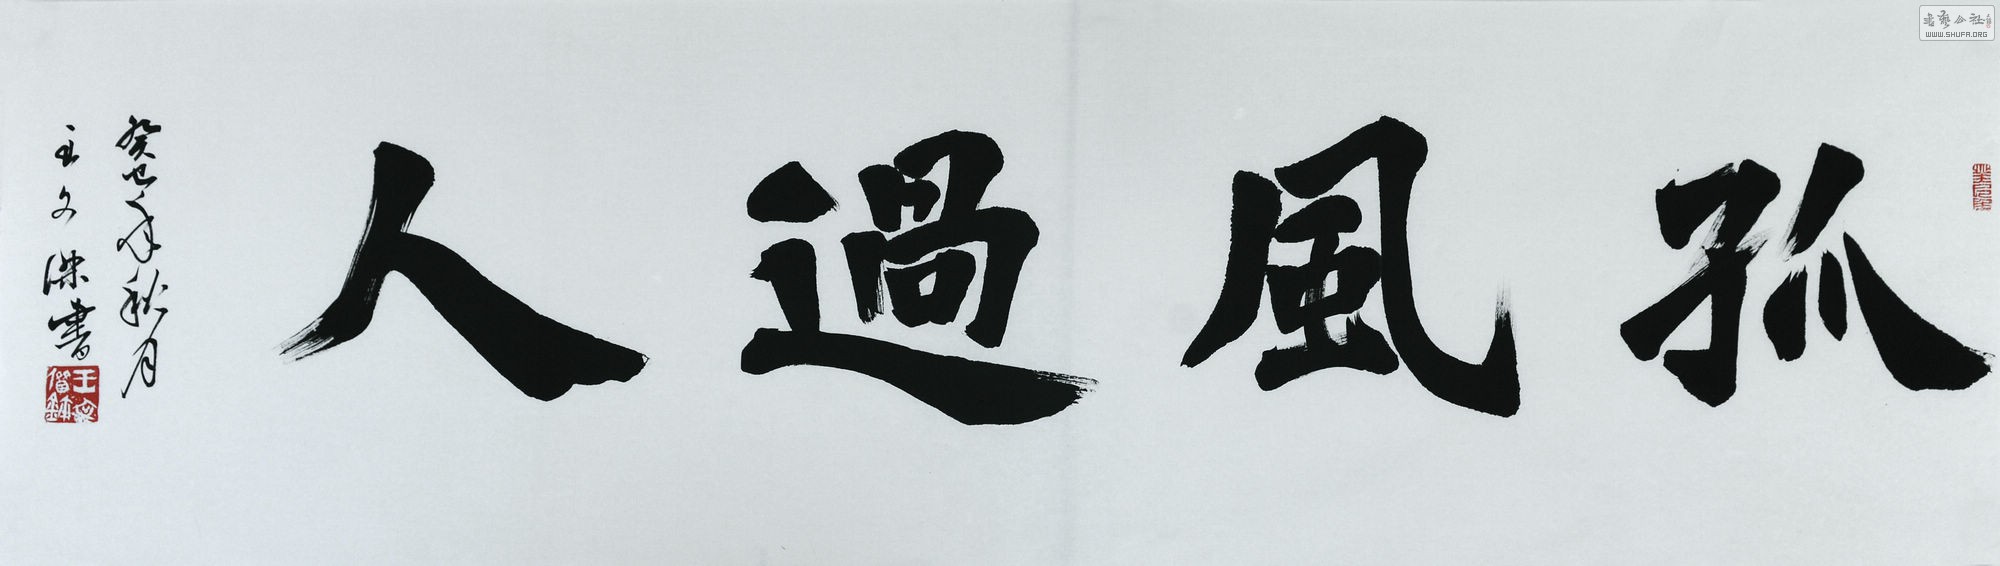 孤風過人
癸巳年秋月
王文傑書
書藝公社
WWW.SHUFA.ORG